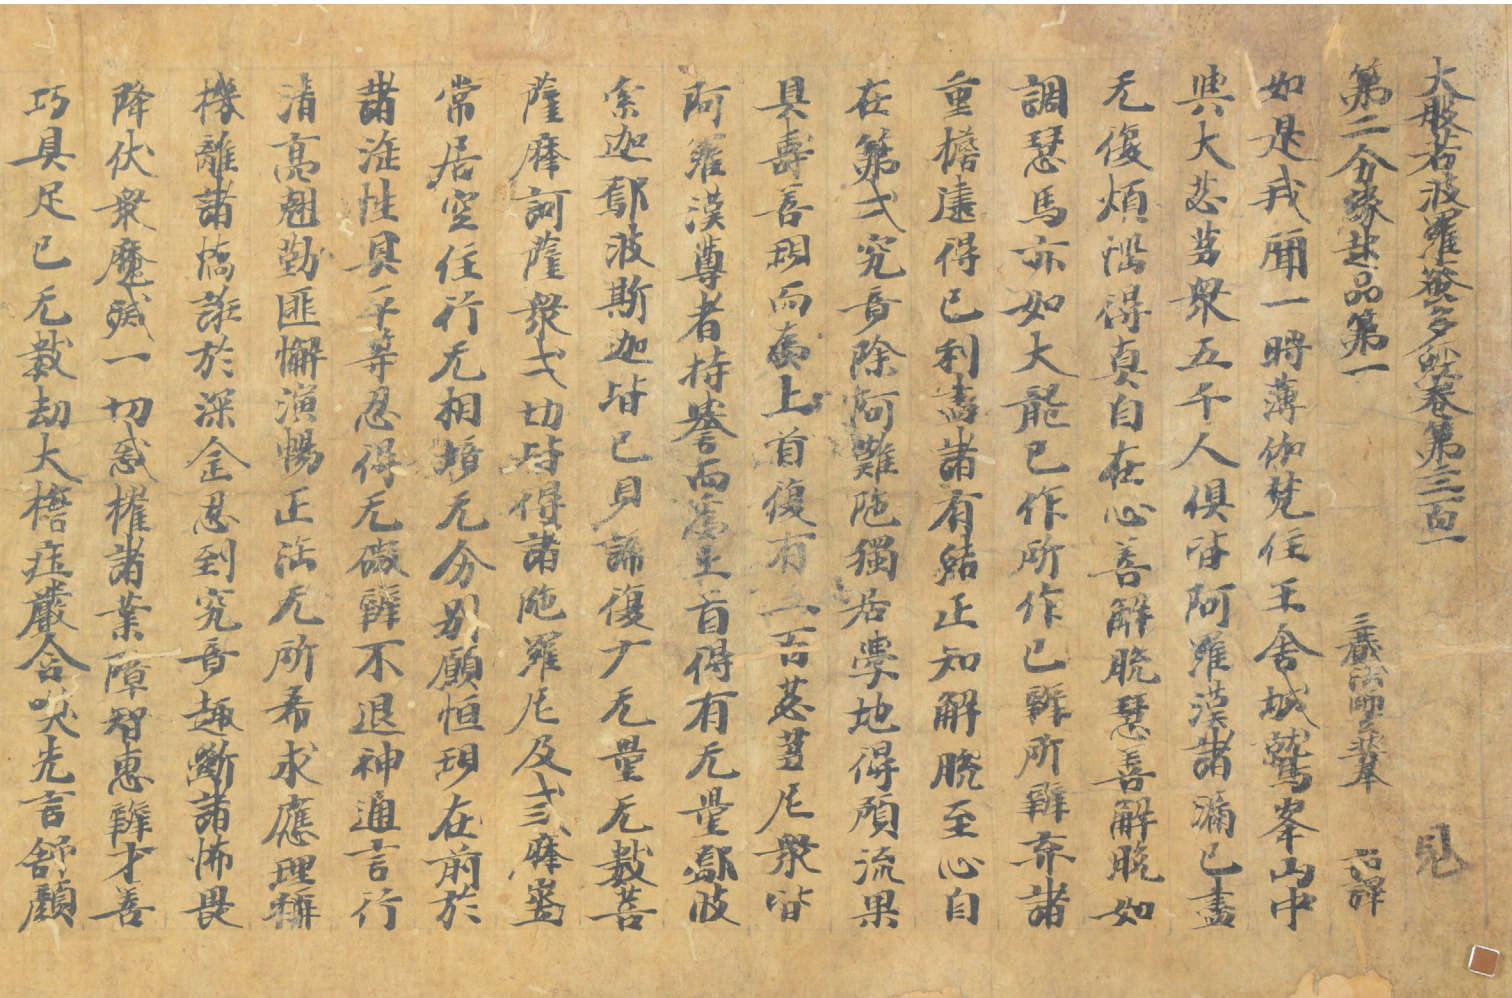 大般若波羅蜜多經卷第三百一 見
第二分緣起品第一 三藏法師玄奘奉 詔譯
如是我聞一時薄伽梵住王舍城鷲峯山中
與大苾芻衆五千人俱皆阿羅漢諸漏已盡
无復煩惱得真自在心善解脫慧善解脫如
調慧馬亦如大龍已作所作已辦所辦弃諸
重擔逮得己利盡諸有結正知解脫至心自
在第弌究竟除阿難陁獨居學地得預流果
具壽善現而爲上首復有五百苾芻尼衆皆
阿羅漢尊者持譽而爲上首得有无量鄔波
索迦鄔波斯迦皆已見諦復有无量无數菩
薩摩訶薩衆弌切皆得諸陁羅尼及弎摩地
常居空住行无相境无分別願恒現在前於
諸法性具平等忍得无礙辯不退神通言行
清高翹勤匪懈演暢正法无所希求應理稱
機離諸矯誑於深法忍到究竟趣斷諸怖畏
降伏衆魔滅一切惑摧諸業障智惠辯才善
巧具足已无數劫大擔莊嚴含咲先言舒顏